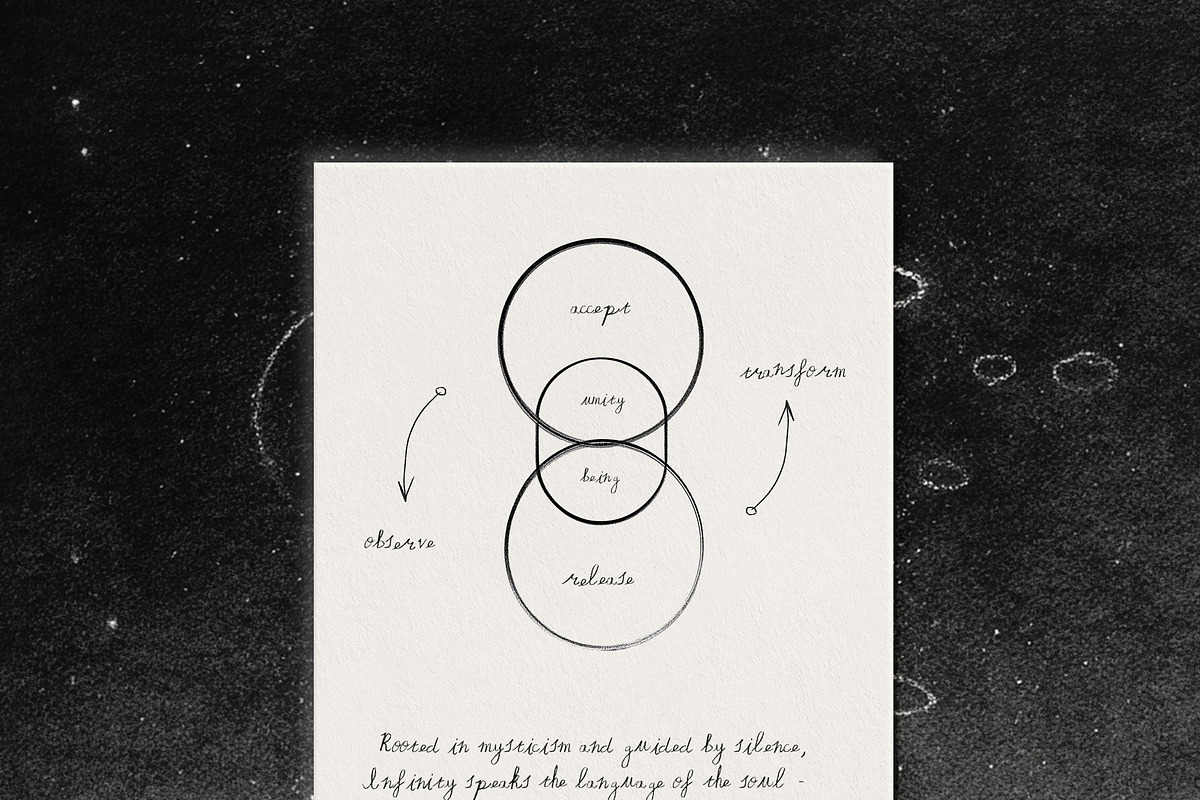 accept
transform
unity
being
observe
release
Rooted in mysticism and guided by silence,
Infinity speaks the language of the soul -